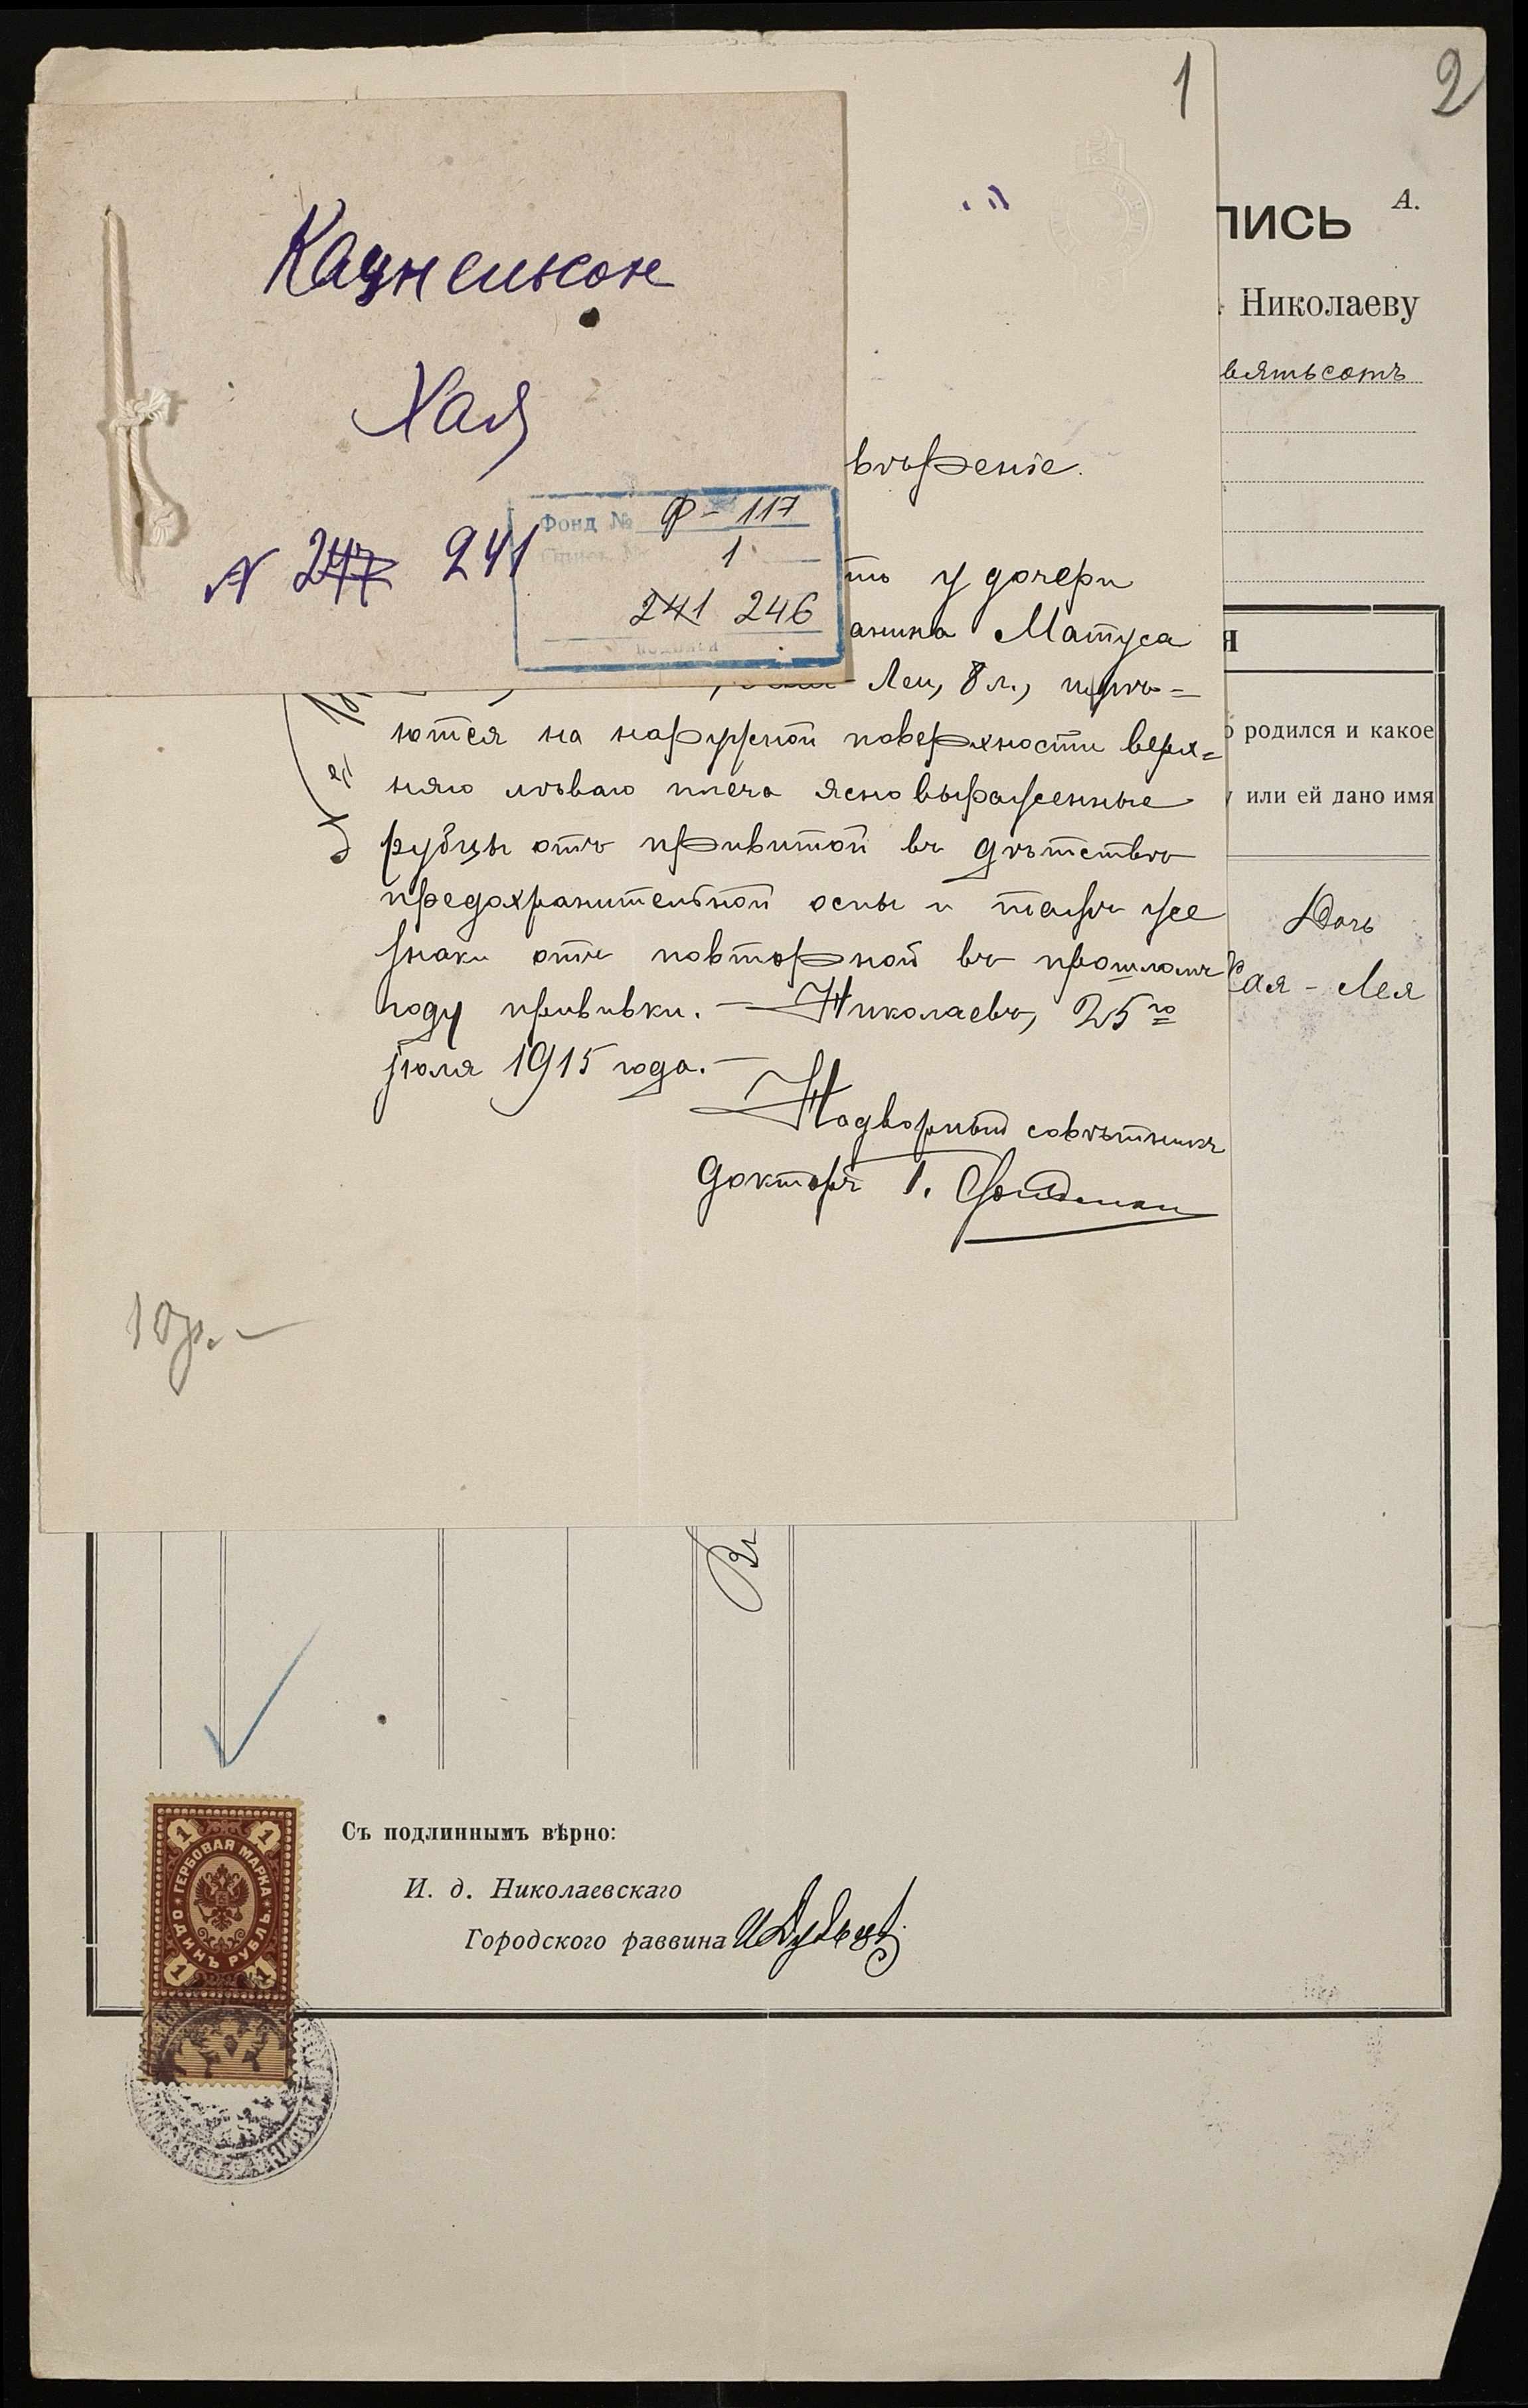 1
2
Кацнельсон
Хая
N 247 241
Фонд № Ф-117
1
241 246
А.
ПИСЬ
Николаеву
вятьсотъ
Я
родился и какое
или ей дано имя
Дочь
Хая - Лея
вѣреніе.
ть у дочери
анина Матуса
Леи, 8 л., имѣ=
ются на наружной поверхности верх=
няго лѣваго плеча ясно выраженные
рубцы отъ привитой въ дѣтствѣ
предохранительной оспы и такіе же
знаки отъ повторной въ прошломъ
году прививки. — Николаевъ, 25го
іюля 1915 года. —
Надворный совѣтникъ
докторъ Г.
10р. —
Съ подлиннымъ вѣрно:
И. д. Николаевскаго
Городского раввина
ГЕРБОВАЯ МАРКА
ОДИНЪ РУБЛЬ
1 1 1 1